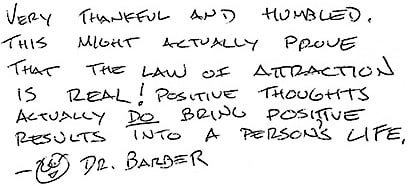 VERY THANKFUL AND HUMBLED.
THIS MIGHT ACTUALLY PROVE
THAT THE LAW OF ATTRACTION
IS REAL! POSITIVE THOUGHTS
ACTUALLY DO BRING POSITIVE
RESULTS INTO A PERSON'S LIFE.
— DR. BARBER